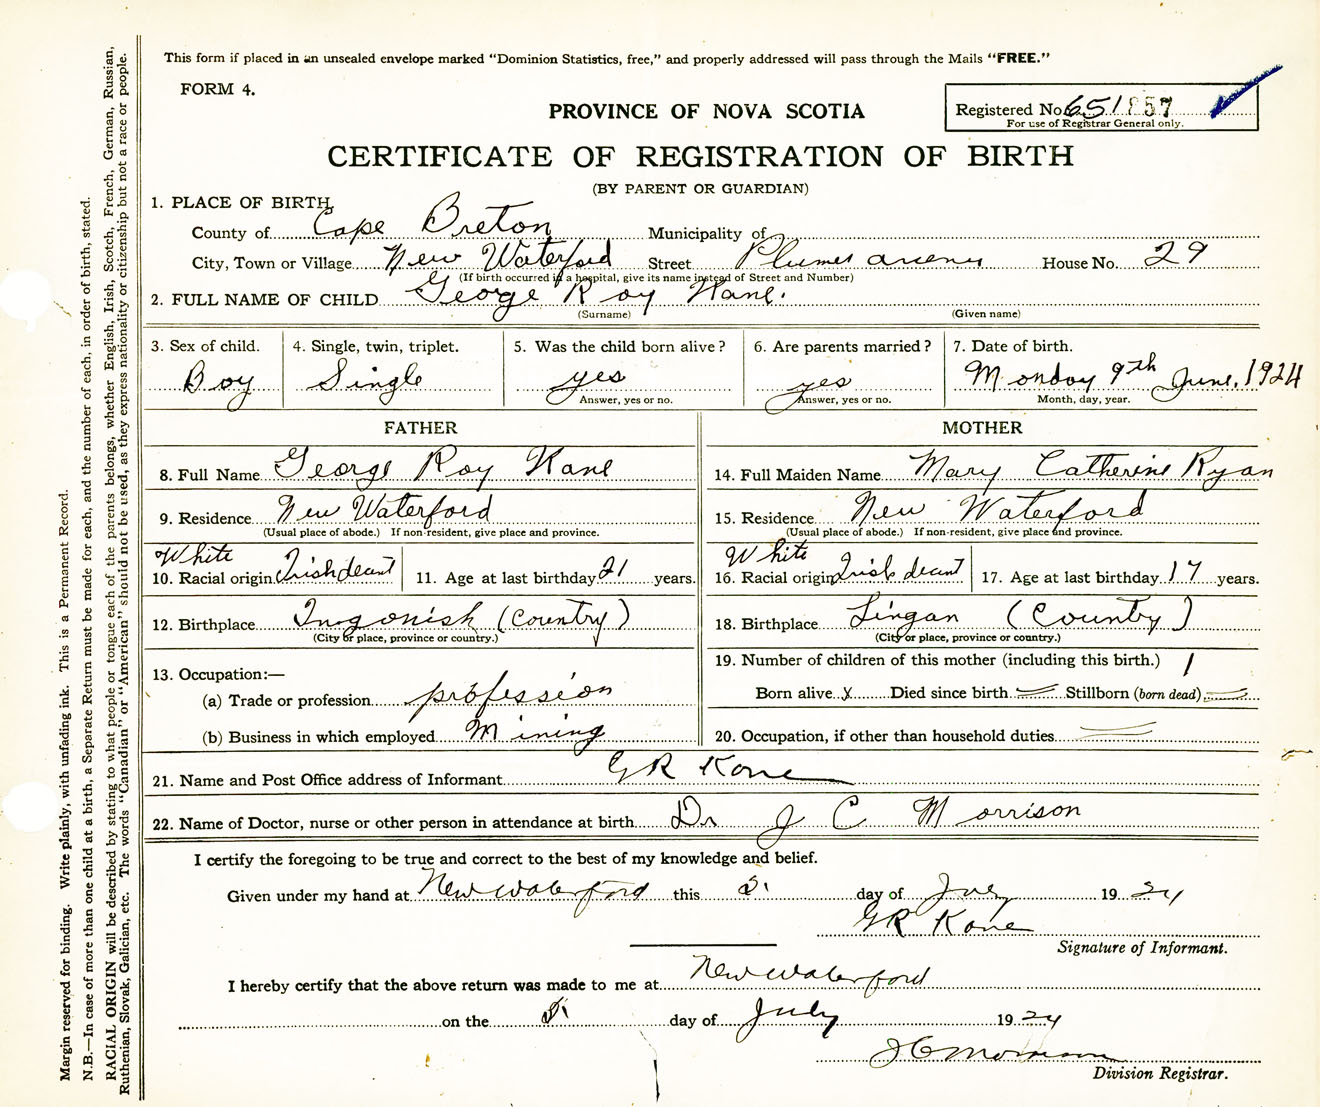 This form if placed in an unsealed envelope marked "Dominion Statistics, free," and properly addressed will pass through the Mails "FREE."
FORM 4.
PROVINCE OF NOVA SCOTIA
Registered No. 651857
For use of Registrar General only.
CERTIFICATE OF REGISTRATION OF BIRTH
(BY PARENT OR GUARDIAN)
1. PLACE OF BIRTH
County of Cape Breton Municipality of
City, Town or Village New Waterford Street Plumer House No. 29
(If birth occurred in a hospital, give its name instead of Street and Number)
2. FULL NAME OF CHILD George Roy Kane.
(Surname) (Given name)
3. Sex of child. 4. Single, twin, triplet. 5. Was the child born alive? 6. Are parents married? 7. Date of birth.
Boy Single yes yes Monday 9th June, 1924
Answer, yes or no. Answer, yes or no. Month, day, year.
FATHER MOTHER
8. Full Name George Roy Kane 14. Full Maiden Name Mary Catherine Ryan
9. Residence New Waterford 15. Residence New Waterford
(Usual place of abode.) If non-resident, give place and province. (Usual place of abode.) If non-resident, give place and province.
White White
10. Racial origin Irish decant 11. Age at last birthday 21 years. 16. Racial origin Irish decant 17. Age at last birthday 17 years.
12. Birthplace Ingonish (Country) 18. Birthplace Lingan (Country)
(City or place, province or country.) (City or place, province or country.)
13. Occupation:— 19. Number of children of this mother (including this birth.) 1
(a) Trade or profession profession Born alive x Died since birth Stillborn (born dead)
(b) Business in which employed Mining 20. Occupation, if other than household duties
21. Name and Post Office address of Informant GR Kane
22. Name of Doctor, nurse or other person in attendance at birth Dr J C Morrison
I certify the foregoing to be true and correct to the best of my knowledge and belief.
Given under my hand at New Waterford this day of July 1924
GR Kane
Signature of Informant.
I hereby certify that the above return was made to me at New Waterford
on the day of July 1924
JC Morrison
Division Registrar.
Margin reserved for binding. Write plainly, with unfading ink. This is a Permanent Record.
N.B.—In case of more than one child at a birth, a Separate Return must be made for each, and the number of each, in order of birth, stated.
RACIAL ORIGIN will be described by stating to what people or tongue each of the parents belongs, whether English, Irish, Scotch, French, German, Russian,
Ruthenian, Slovak, Galician, etc. The words "Canadian" or "American" should not be used, as they express nationality or citizenship but not a race or people.